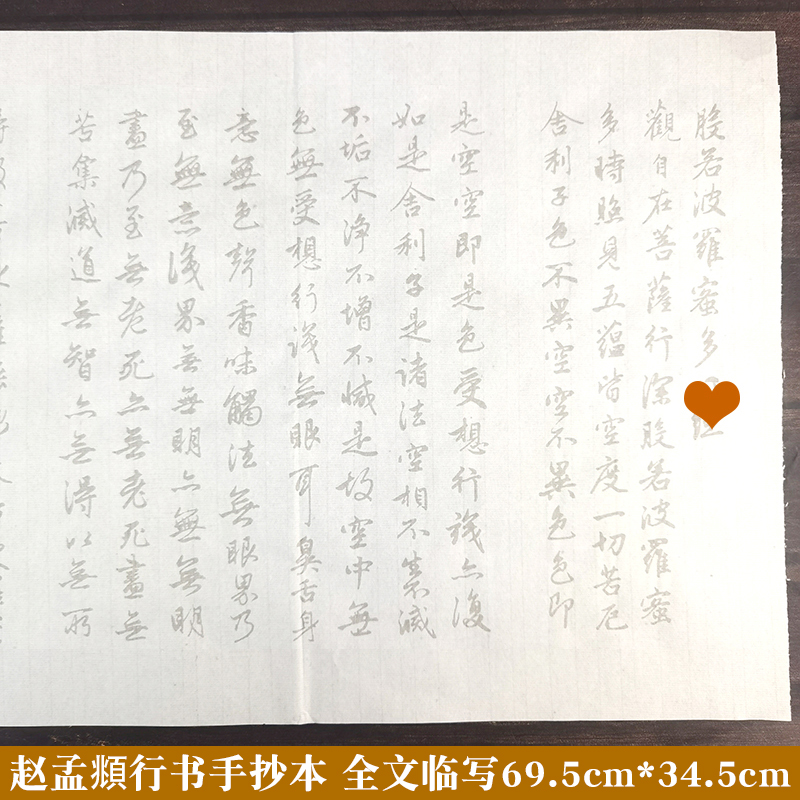 般若波羅蜜多
觀自在菩薩行深般若波羅蜜
多時照見五蘊皆空度一切苦厄
舍利子色不異空空不異色色即
是空空即是色受想行識亦復
如是舍利子是諸法空相不生不滅
不垢不淨不增不減是故空中無
色無受想行識無眼耳鼻舌身
意無色聲香味觸法無眼界乃
至無意識界無無明亦無無明
盡乃至無老死亦無老死盡無
苦集滅道無智亦無得以無所
赵孟頫行书手抄本 全文临写69.5cm*34.5cm